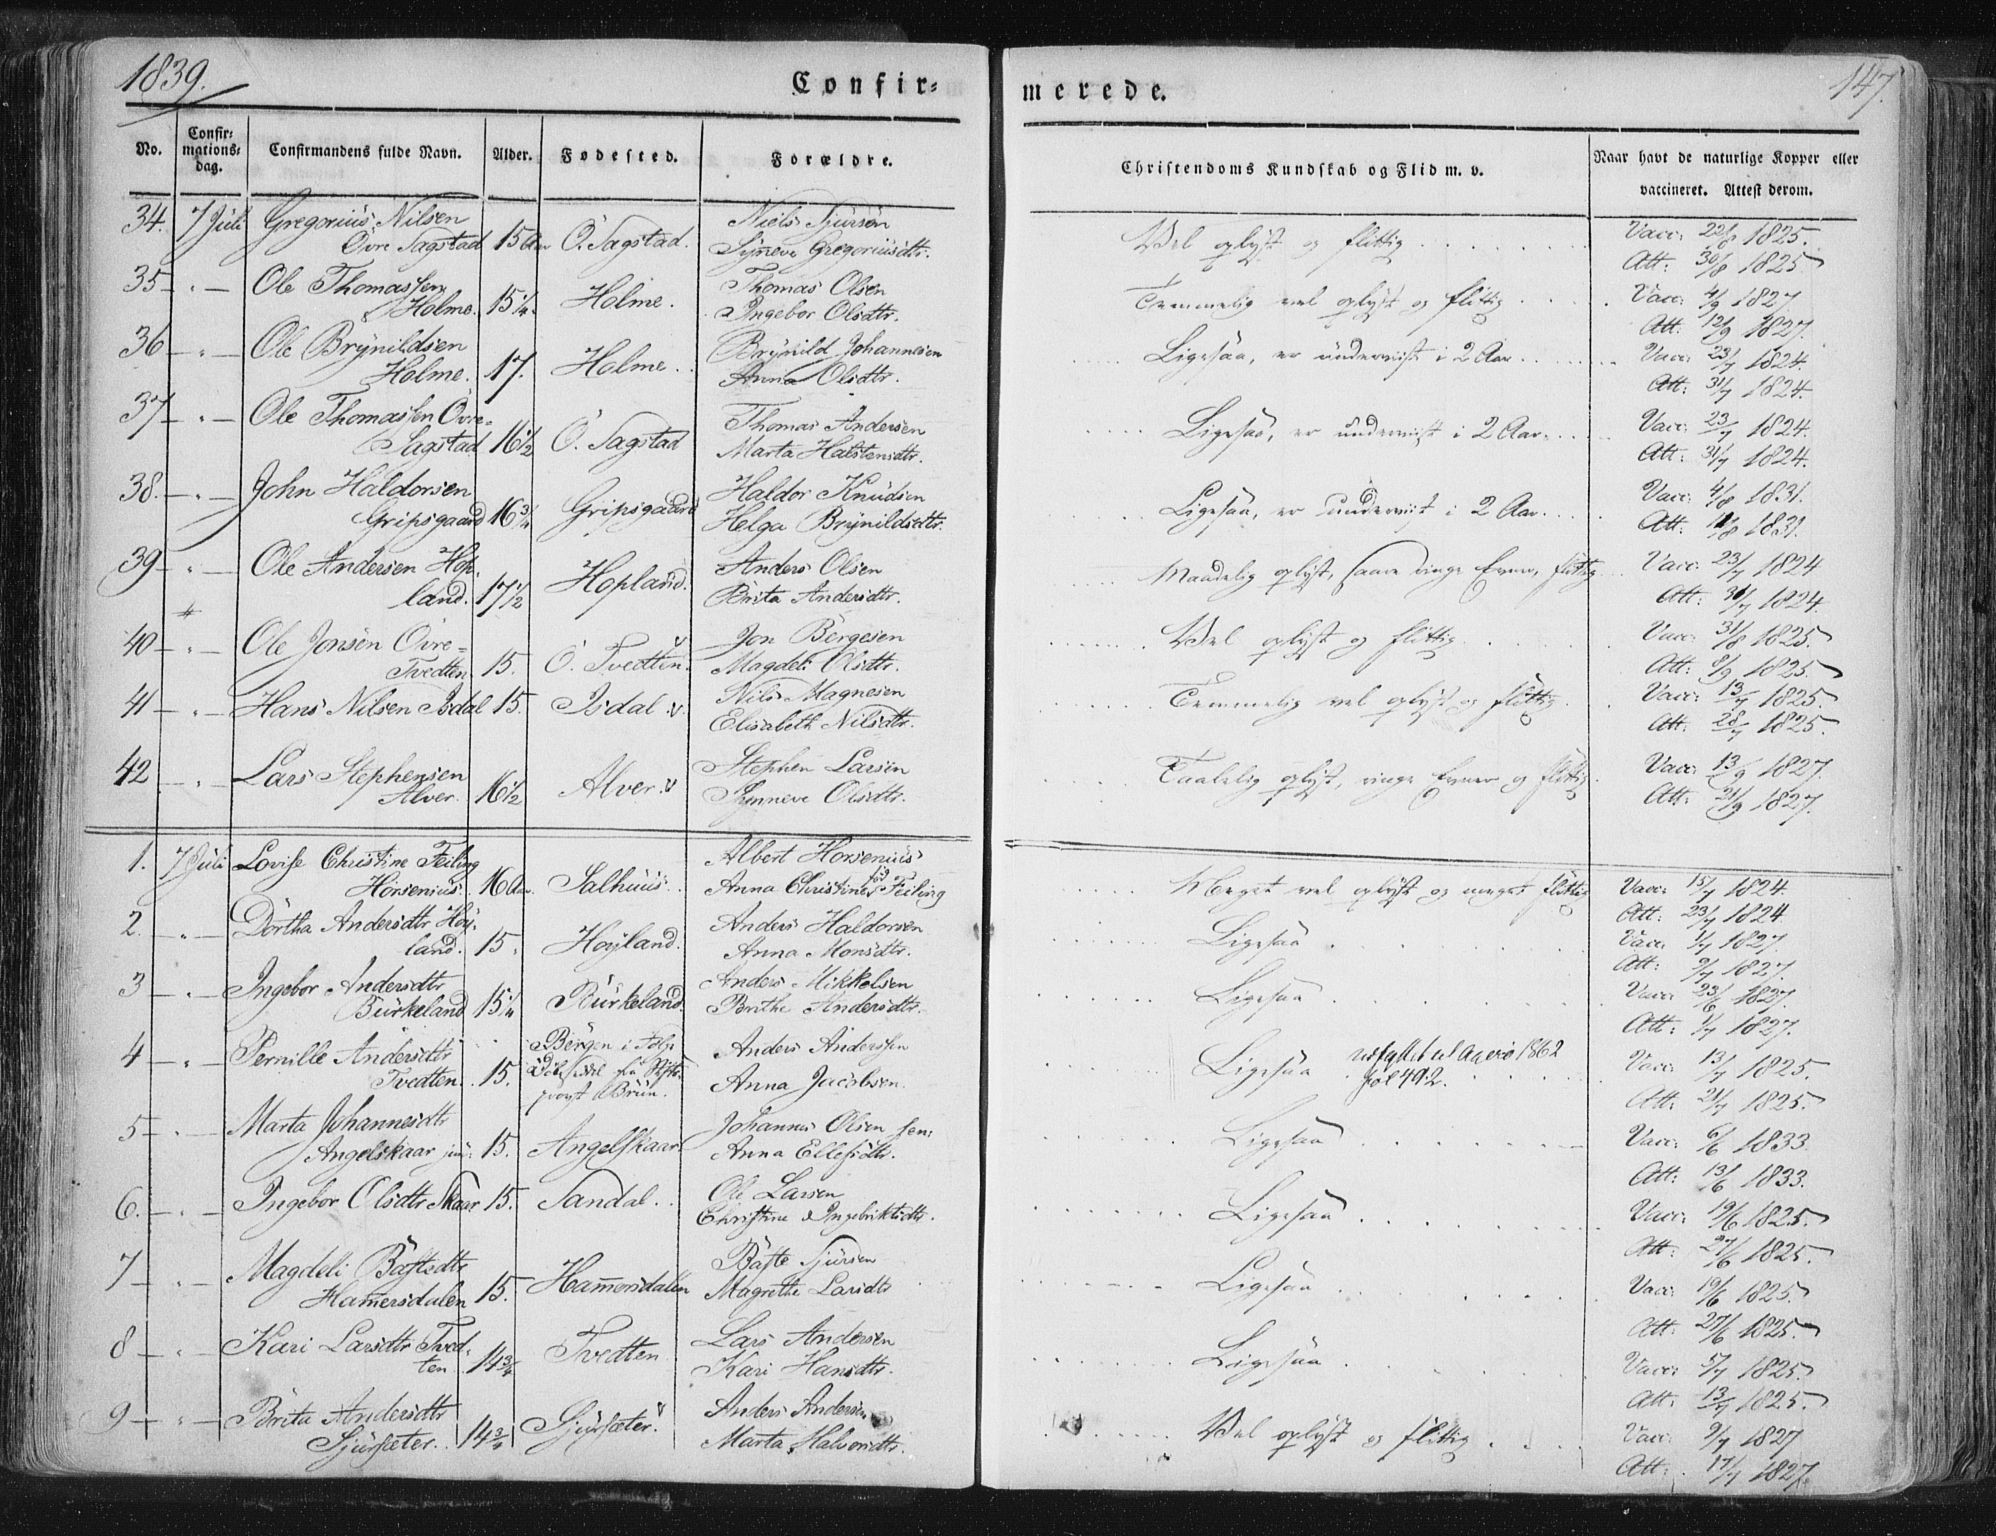 1839.
Confir-
merede.
147.
No.
Confir-
mations-
dag.
Confirmandens fulde Navn.
Alder.
Fødested.
Forældre.
Christendoms Kundskab og Flid m. v.
Naar havt de naturlige Kopper eller
vaccineret. Attest derom.
34. 7 Juli Gregorius Nilsen Niels Sjursøn
Övre Sagstad 15 Aar Ö. Sagstad. Synneve Gregoriusdtr. Vel oplyst og flittig Vacc: 22/8 1825.
Att: 30/8 1825
35 - " - Ole Thomassen Thomas Olsen Vacc: 4/9 1827
Holme. 15 1/4. Holme. Ingebor Olsdtr. Temmelig vel oplyst og flittig Att: 12/9 1827.
36 - " - Ole Brynildsen Brynild Johannesen Ligesaa, er underviist i 2 Aar Vacc: 23/7 1824.
Holme. 17. Holme. Anna Olsdtr. Att: 31/7 1824.
37 - " - Ole Thomassen Övre- Thomas Andersen Vacc: 23/7 1824.
Sagstad 16 1/2 Ö. Sagstad Marta Halstensdtr. Ligesaa, er underviist i 2 Aar. Att: 31/7 1824.
38. - " - John Haldorsen Haldor Knudsen Vacc: 4/8 1831.
Gripsgaard 16 3/4 Gripsgaard Helga Brynildsdtr. Ligesaa, er underviist i 2 Aar. Att: 1831.
39 - " - Ole Andersen Hop- Anders Olsen Vacc: 23/7 1824
land. 17 1/2 Hopland. Brita Andersdtr. Maadelig oplyst, svære ringe Evner, flittig Att: 31/7 1824.
40 - " - Ole Jonsen Övre- Jon Børgesen Vel oplyst og flittig Vacc: 31/8 1825
Tvedten 15. Ö. Tvedten. Magdeli Olsdtr. Att: 8/9 1825
41 - " - Hans Nilsen Isdal 15. Isdal v. Nils Magnesen Temmelig vel oplyst og flittig Vacc: 13/7 1825
Elisabeth Nilsdtr. Att: 28/7 1825.
42 - " - Lars Stephensen Stephen Larsen Vacc: 13/9 1827.
Alver. 16 1/2 Alver. v Synneve Olsdtr. Taalelig oplyst, ringe Evner og flittig Att: 21/9 1827.
1. 7 Juli Lovise Christine Feiling Albert Horsenius
Horsenius 16 Aar. Salhuus. Anna Christine Feiling Meget vel oplyst og meget flittig Vacc: 15/7 1824.
Att: 23/7 1824
2. " - Dortha Andersdtr Høy- Anders Haldorsen Ligesaa Vacc: 1/7 1827
land. 15. Høyland. Anna Monsdtr. Att: 9/7 1827.
3 - " - Ingebor Andersdtr Anders Mikkelsen Vacc: 23/6 1827.
Burkeland 15 1/4 Burkeland. Brithe Andersdtr. Ligesaa Att: 1/7 1827.
4 - " - Pernille Andersdtr Bergen i Følge Anders Anderssen Ligesaa 1862 Vacc: 13/7 1825.
Tvedten. 15. fra Stifts- Anna Jacobsen. fol 492. Att: 21/7 1825.
provst Brun.
5 - " - Marta Johannesdtr Johannes Olsen sen: Ligesaa Vacc: 6/6 1833
Angelskaar jun: 15. Angelskaar Anna Ellefsdtr. Att: 13/6 1833.
6. - " - Ingebor Olsdtr Skaar 15. Sandal. Ole Larsen Ligesaa Vacc: 19/6 1825.
Christine Ingebriktsdtr. Att: 27/6 1825.
7 - " - Magdeli Baftsdtr Bafte Sjursen Ligesaa Vacc: 19/6 1825.
Hamersdalen 15. Hamersdalen Magrethe Larsdtr Att: 27/6 1825.
8 - " - Kari Larsdtr Tved- Lars Andersen Ligesaa Vacc: 5/7 1825.
ten 14 3/4 Tvedten Kari Hansdtr. Att: 13/7 1825.
9 - " - Brita Andersdtr Anders Andersen Vel oplyst og flittig Vacc: 9/7 1827
Sjursæter. 14 3/4 Sjursæter. Marta Halvordtr. Att: 17/7 1827.